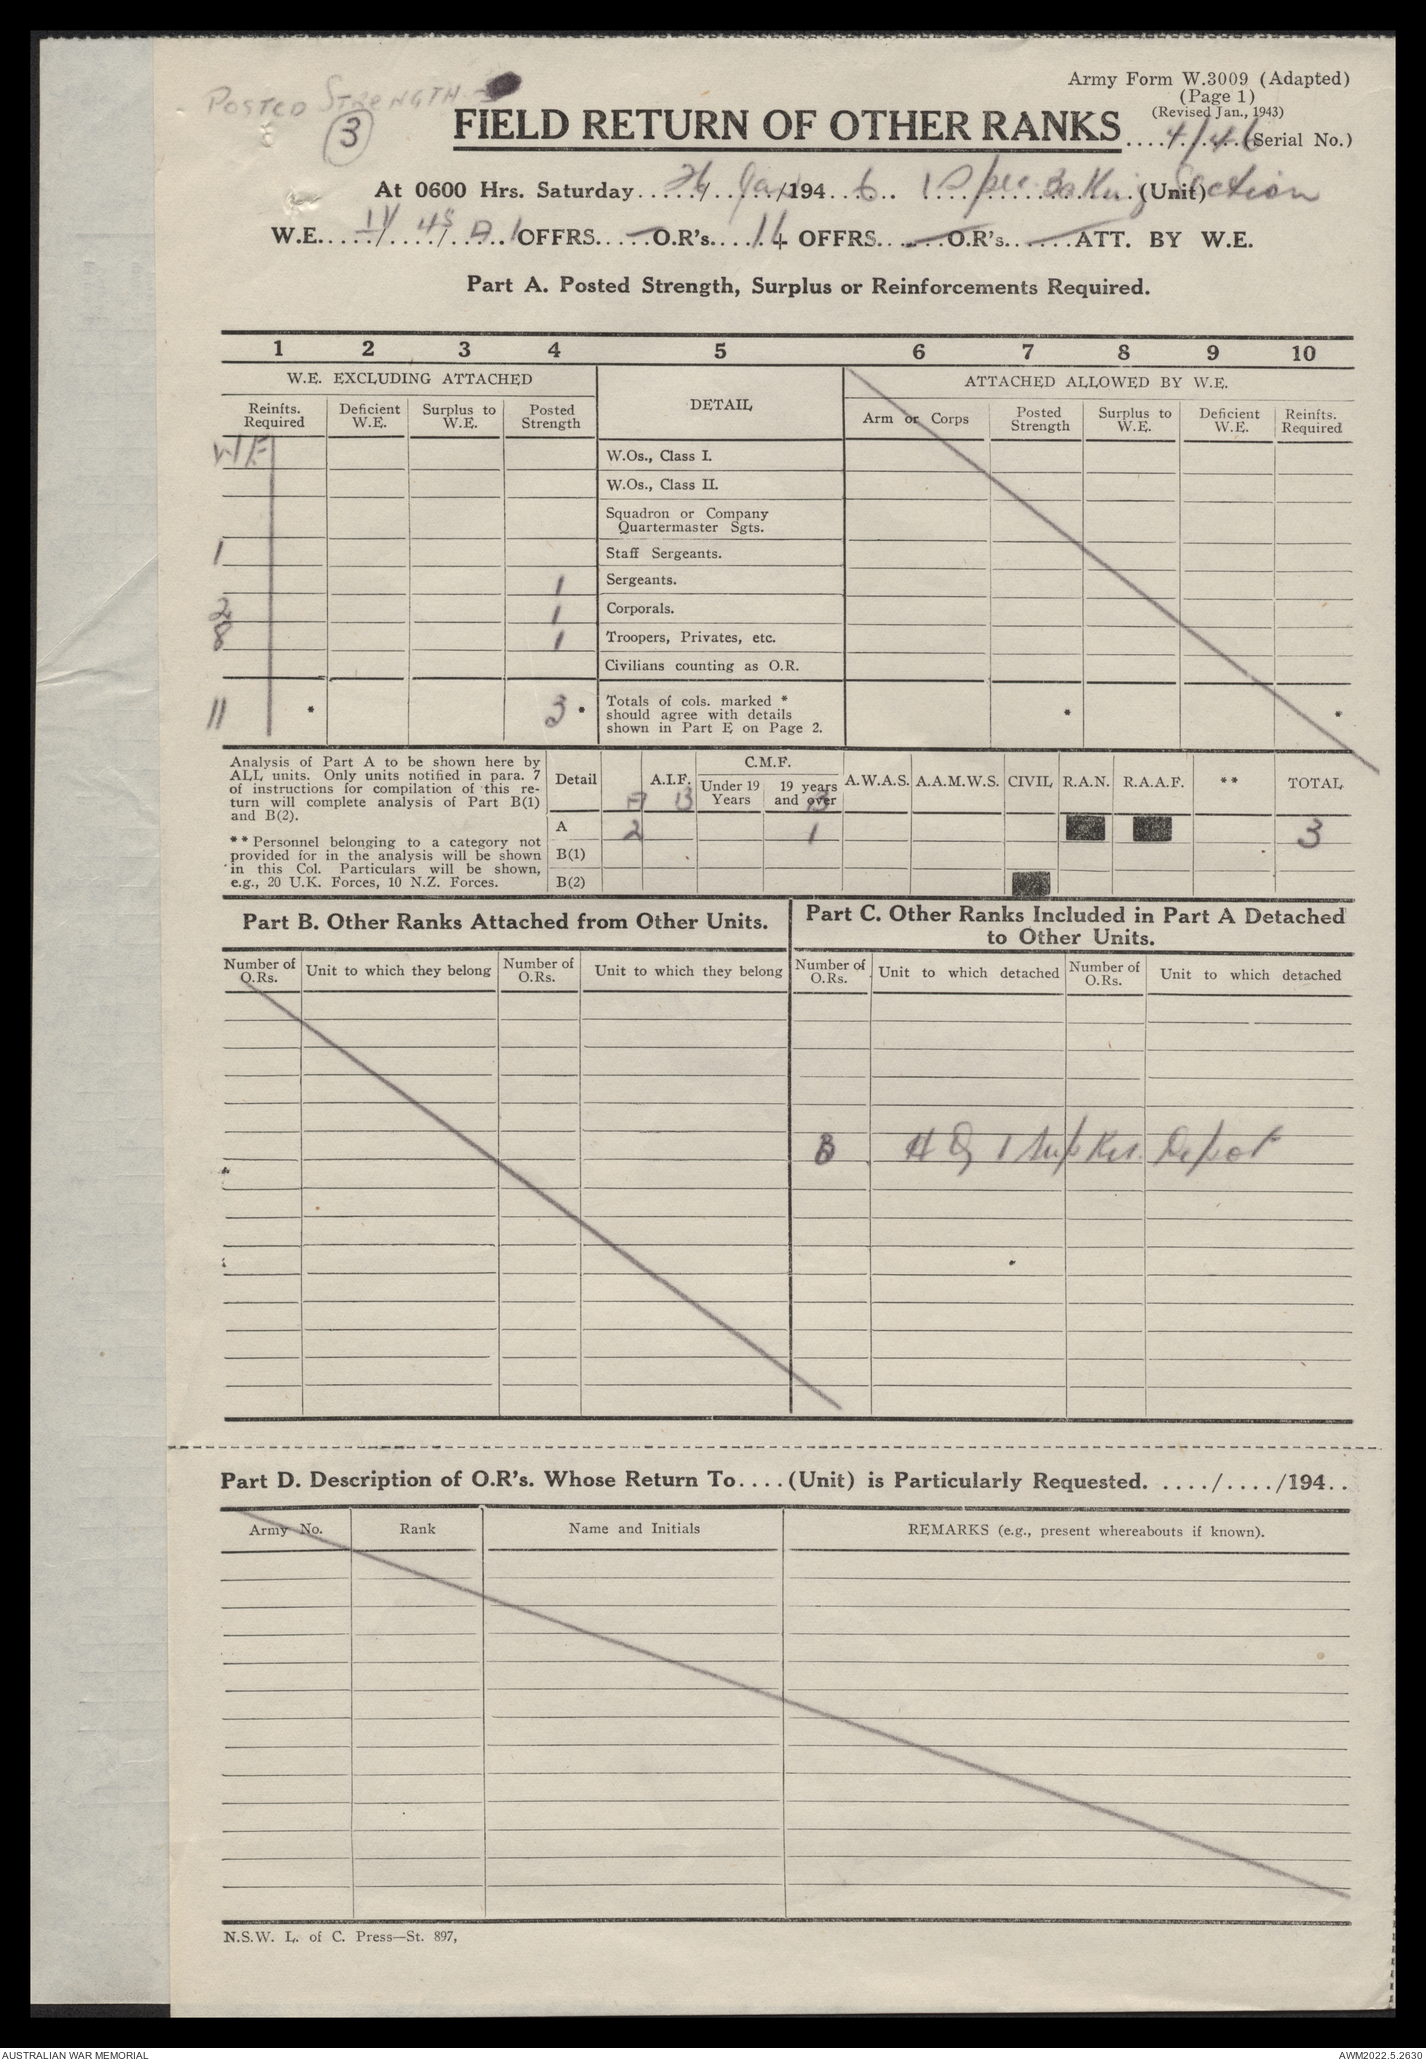 Army Form W.3009 (Adapted)
(Page 1)
(Revised Jan., 1943)
POSTED STRENGTH
3
FIELD RETURN OF OTHER RANKS....4/46(Serial No.)
At 0600 Hrs. Saturday.....26/Jan/194...6... 1 Spec Baking Section (Unit)
W.E...../..../.....OFFRS.....—O.R's.....11+ OFFRS...—...O.R's...—...ATT. BY W.E.
Part A. Posted Strength, Surplus or Reinforcements Required.
1 2 3 4 5 6 7 8 9 10
W.E. EXCLUDING ATTACHED DETAIL ATTACHED ALLOWED BY W.E.
Reinfts. Required Deficient W.E. Surplus to W.E. Posted Strength Arm or Corps Posted Strength Surplus to W.E. Deficient W.E. Reinfts. Required
W/E W.Os., Class I.
W.Os., Class II.
Squadron or Company
Quartermaster Sgts.
1 Staff Sergeants.
1 Sergeants.
2 1 Corporals.
8 1 Troopers, Privates, etc.
Civilians counting as O.R.
11 * 3 * Totals of cols. marked * * *
should agree with details
shown in Part E on Page 2.
Analysis of Part A to be shown here by
ALL units. Only units notified in para. 7
of instructions for compilation of this re-
turn will complete analysis of Part B(1)
and B(2).
** Personnel belonging to a category not
provided for in the analysis will be shown
in this Col. Particulars will be shown,
e.g., 20 U.K. Forces, 10 N.Z. Forces.
Detail A.I.F. C.M.F. A.W.A.S. A.A.M.W.S. CIVIL R.A.N. R.A.A.F. ** TOTAL
Under 19 Years 19 years and over
A B B
A 2 1 3
B(1)
B(2)
Part B. Other Ranks Attached from Other Units.
Part C. Other Ranks Included in Part A Detached
to Other Units.
Number of O.Rs. Unit to which they belong Number of O.Rs. Unit to which they belong Number of O.Rs. Unit to which detached Number of O.Rs. Unit to which detached
3 HQ 1 Sup Res. Depot
Part D. Description of O.R's. Whose Return To....(Unit) is Particularly Requested. ..../..../194..
Army No. Rank Name and Initials REMARKS (e.g., present whereabouts if known).
N.S.W. L. of C. Press—St. 897,
AUSTRALIAN WAR MEMORIAL AWM2022.5.2630